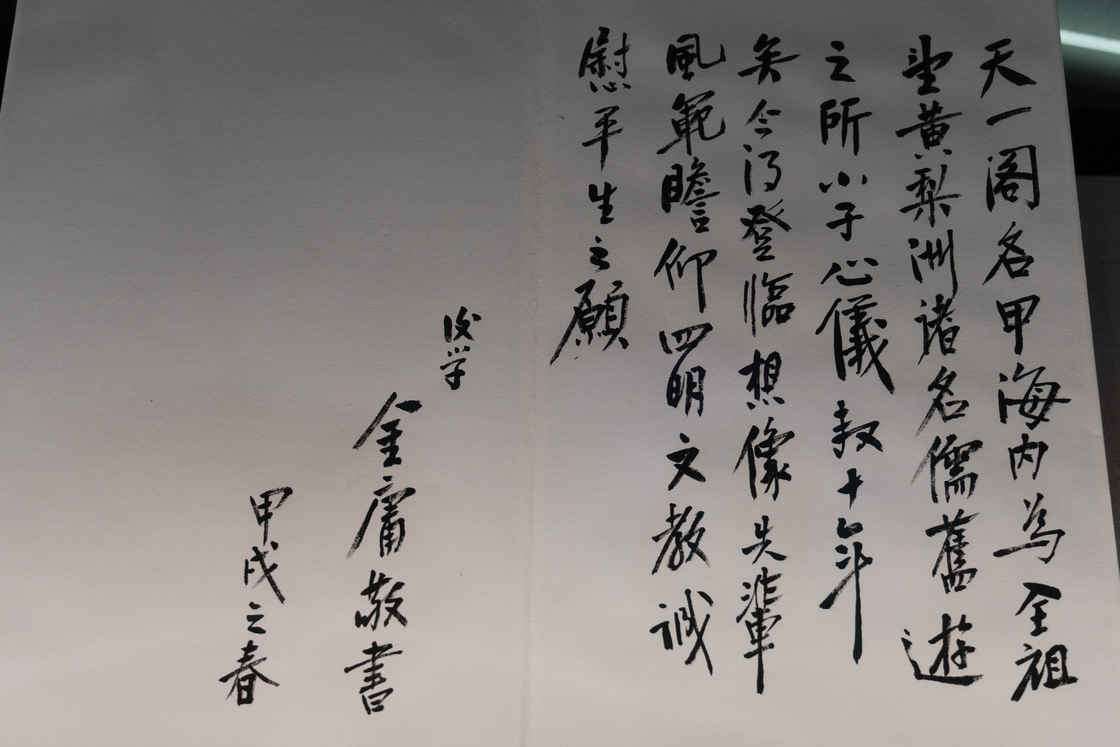 天一阁名甲海内為全祖
望黄梨洲諸名儒舊遊
之所小子心儀数十年
矣今得登臨想像先輩
風範瞻仰四明文教誠
慰平生之願
後学
金庸敬書
甲戌之春